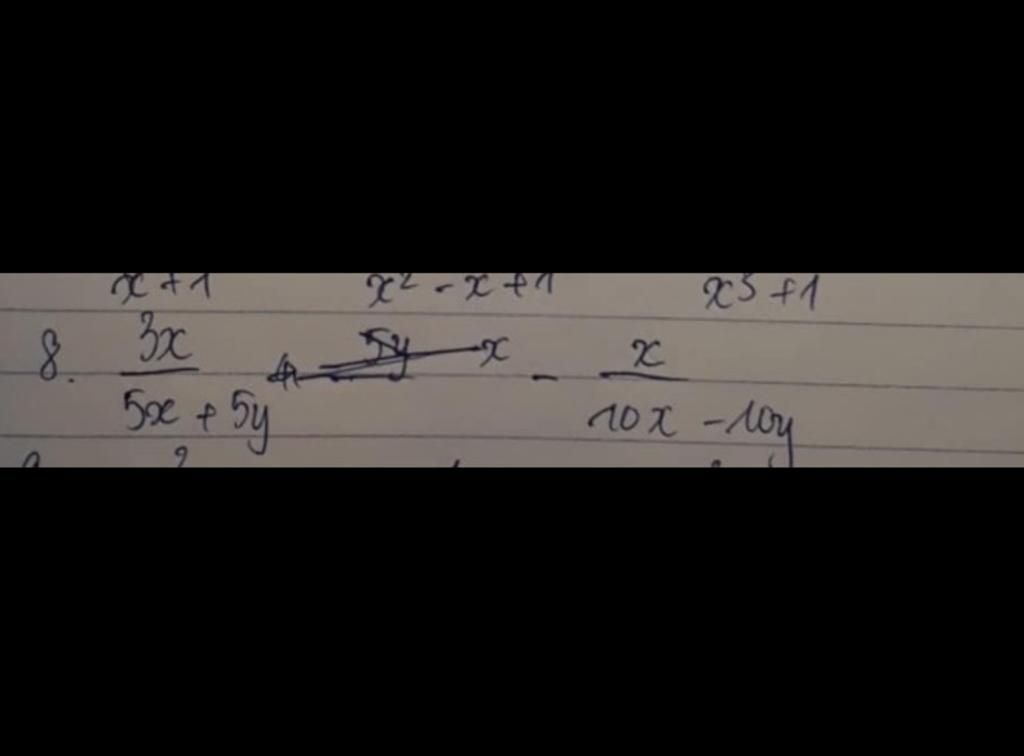 x+1 x² - x+1 x³ +1
8. 3x/(5x + 5y) x - x/(10x - 10y)